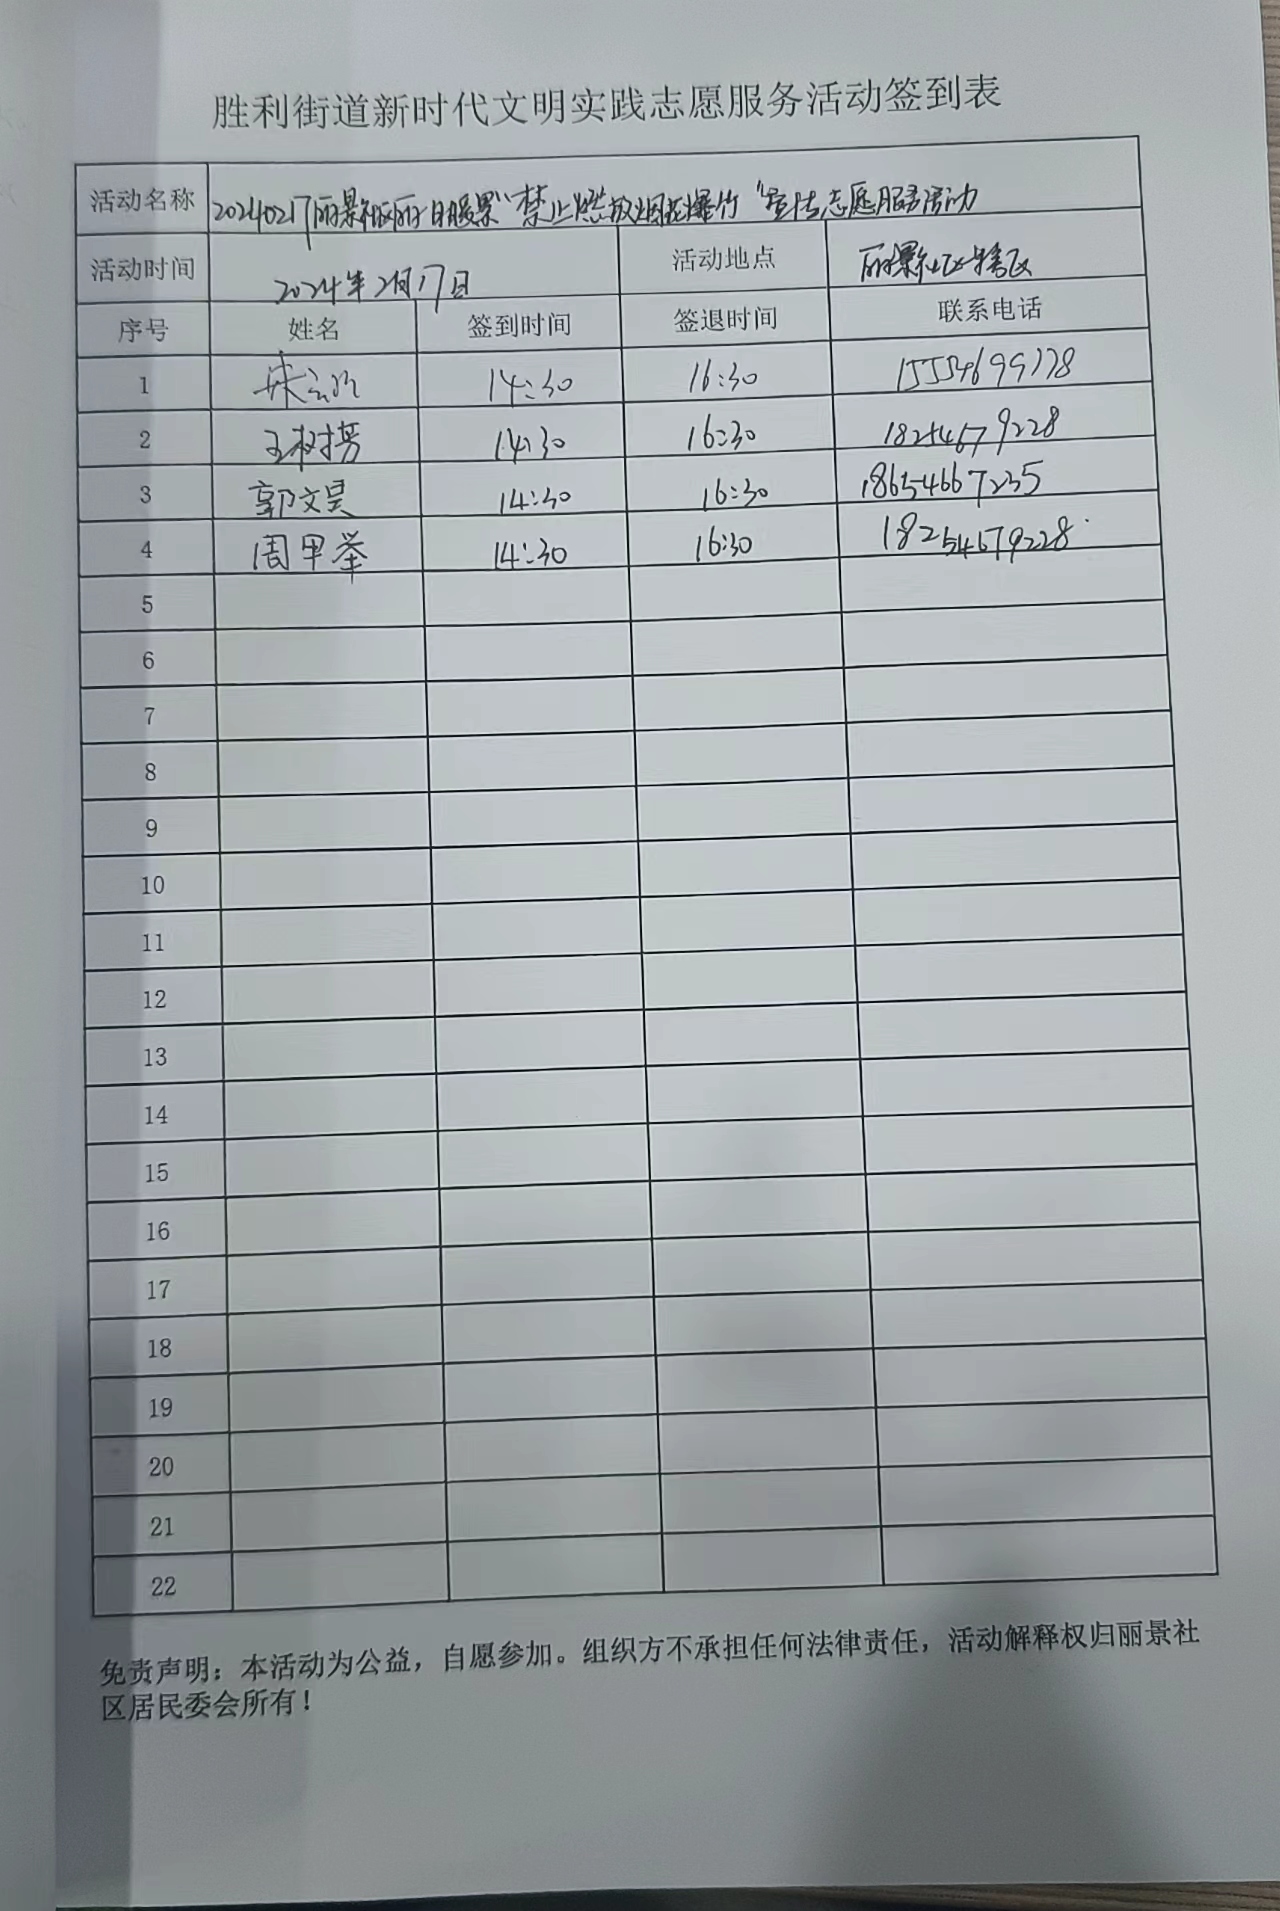 胜利街道新时代文明实践志愿服务活动签到表
活动名称 20240217丽景社区 "禁止燃放烟花爆竹"宣传志愿服务活动
活动时间 2024年2月17日 活动地点 丽景社区辖区
序号 姓名 签到时间 签退时间 联系电话
1 14:30 16:30 15554699778
2 王树芳 14:30 16:30 18254679228
3 郭文昊 14:30 16:30 18654667235
4 周甲举 14:30 16:30 18254679228
5
6
7
8
9
10
11
12
13
14
15
16
17
18
19
20
21
22
免责声明：本活动为公益，自愿参加。组织方不承担任何法律责任，活动解释权归丽景社
区居民委会所有！